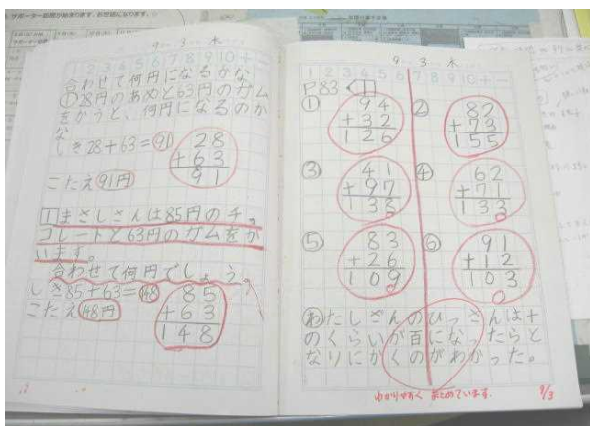 9 3 木
1 2 3 4 5 6 7 8 9 10 + -
合わせて何円になるかな
① 28円のあめと63円のガム
をかうと、何円になるのか
な
しき28+63=91
28
+63
91
こたえ91円
1 まさしさんは85円のチョ
コレートと63円のガムをか
います。
合わせて何円でしょう。
しき85+63=148
85
+63
148
こたえ148円
9 3 木
1 2 3 4 5 6 7 8 9 10 + -
P83
① 94
+32
126
② 82
+73
155
③ 41
+97
138
④ 62
+71
133
⑤ 83
+26
109
⑥ 91
+12
103
わたしざんのひっさんは十
のくらいが百になったらと
なりにかくのがわかった。
わかりやすく まとめています。
9/3